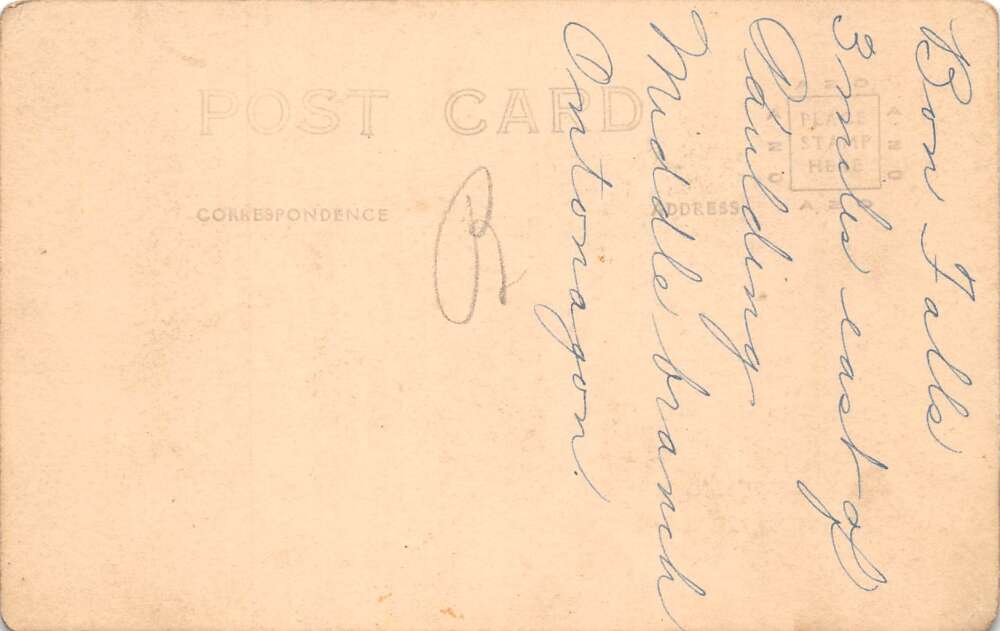 POST CARD
CORRESPONDENCE
ADDRESS
PLACE
STAMP
HERE
AZO
AZO
AZO
AZO
Bon Falls
3 miles east of
Paulding
Middle branch
Ontonagon.